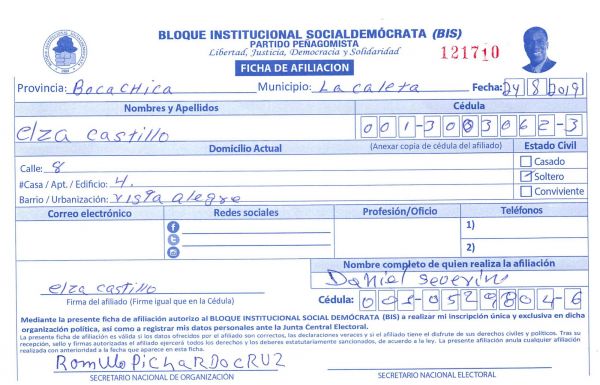 BLOQUE INSTITUCIONAL SOCIALDEMÓCRATA (BIS)
PARTIDO PEÑAGOMISTA
Libertad, Justicia, Democracia y Solidaridad
121710
FICHA DE AFILIACION
Provincia: Bocachica Municipio: La caleta Fecha: 24/8/2019
Nombres y Apellidos Cédula
elza castillo 001-3003062-3
Domicilio Actual (Anexar copia de cédula del afiliado) Estado Civil
Calle: 8 Casado
#Casa / Apt. / Edificio: 4. Soltero
Barrio / Urbanización: vista alegre Conviviente
Correo electrónico Redes sociales Profesión/Oficio Teléfonos
1)
2)
Nombre completo de quien realiza la afiliación
elza castillo Daniel Severin
Firma del afiliado (Firme igual que en la Cédula) Cédula: 001-0529804-6
Mediante la presente ficha de afiliación autorizo al BLOQUE INSTITUCIONAL SOCIAL DEMÓCRATA (BIS) a realizar mi inscripción única y exclusiva en dicha
organización política, así como a registrar mis datos personales ante la Junta Central Electoral.
La presente ficha de afiliación es válida si los datos ofrecidos por el afiliado son correctos, las declaraciones veraces y si el afiliado tiene el disfrute de sus derechos civiles y políticos. Tras su
recepción, sello y firmas autorizadas el afiliado ejercerá todos los derechos y los deberes estatutariamente sancionados, de acuerdo a la ley. La presente afiliación anula cualquier afiliación
realizada con anterioridad a la fecha que aparece en esta ficha.
Romulo Pichardo Cruz
SECRETARIO NACIONAL DE ORGANIZACIÓN SECRETARIO NACIONAL ELECTORAL